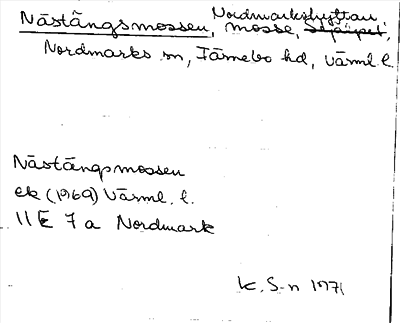 Nordmarkshyttan
Nästängsmossen, mosse, Stjälpet,
Nordmarks sn, Färnebo hd, Värml. l.
Nästängsmossen
ek (1969) Värml. l.
11E 7a Nordmark
K. S-n 1971